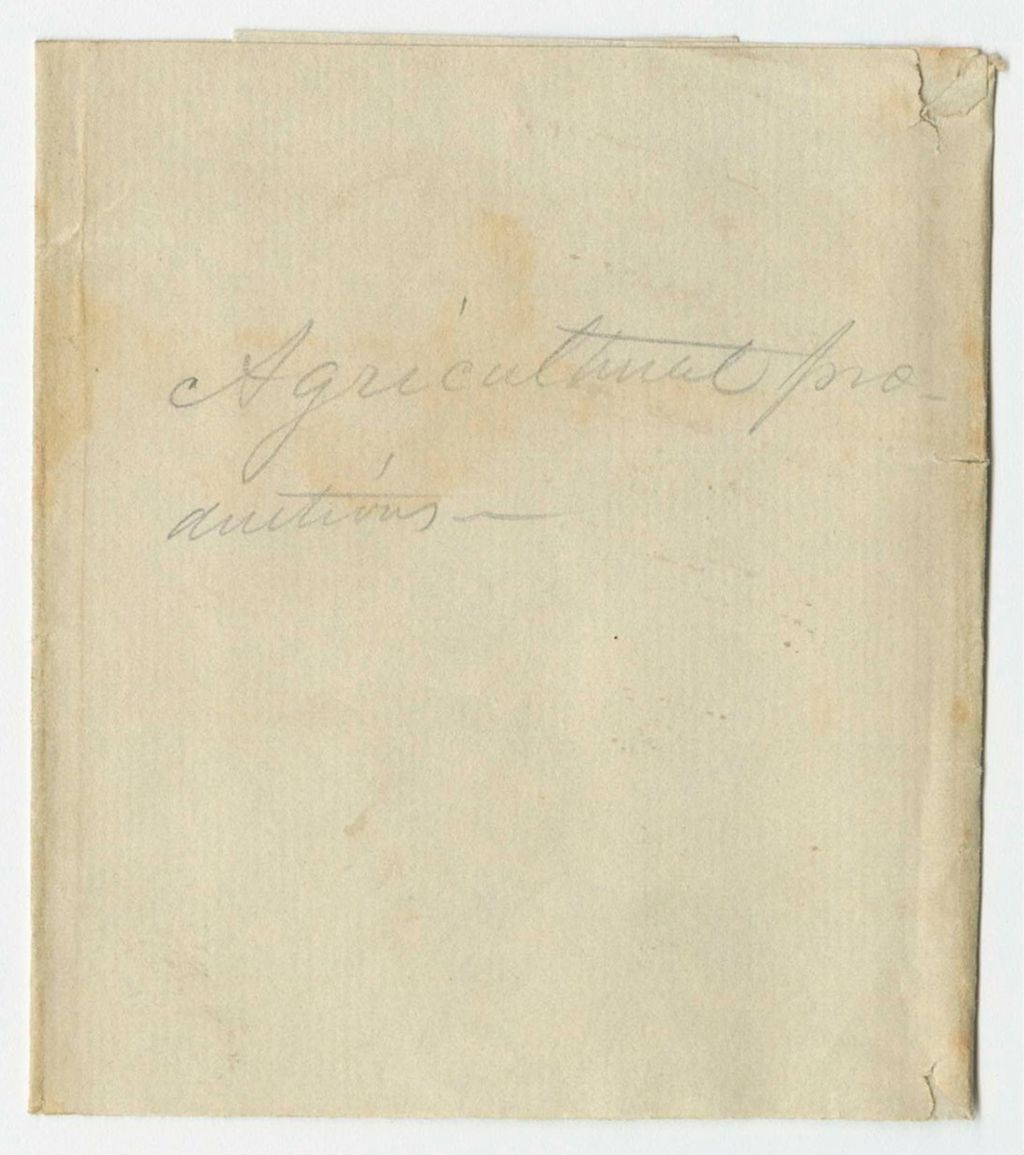 Agricultural pro-
ductions —